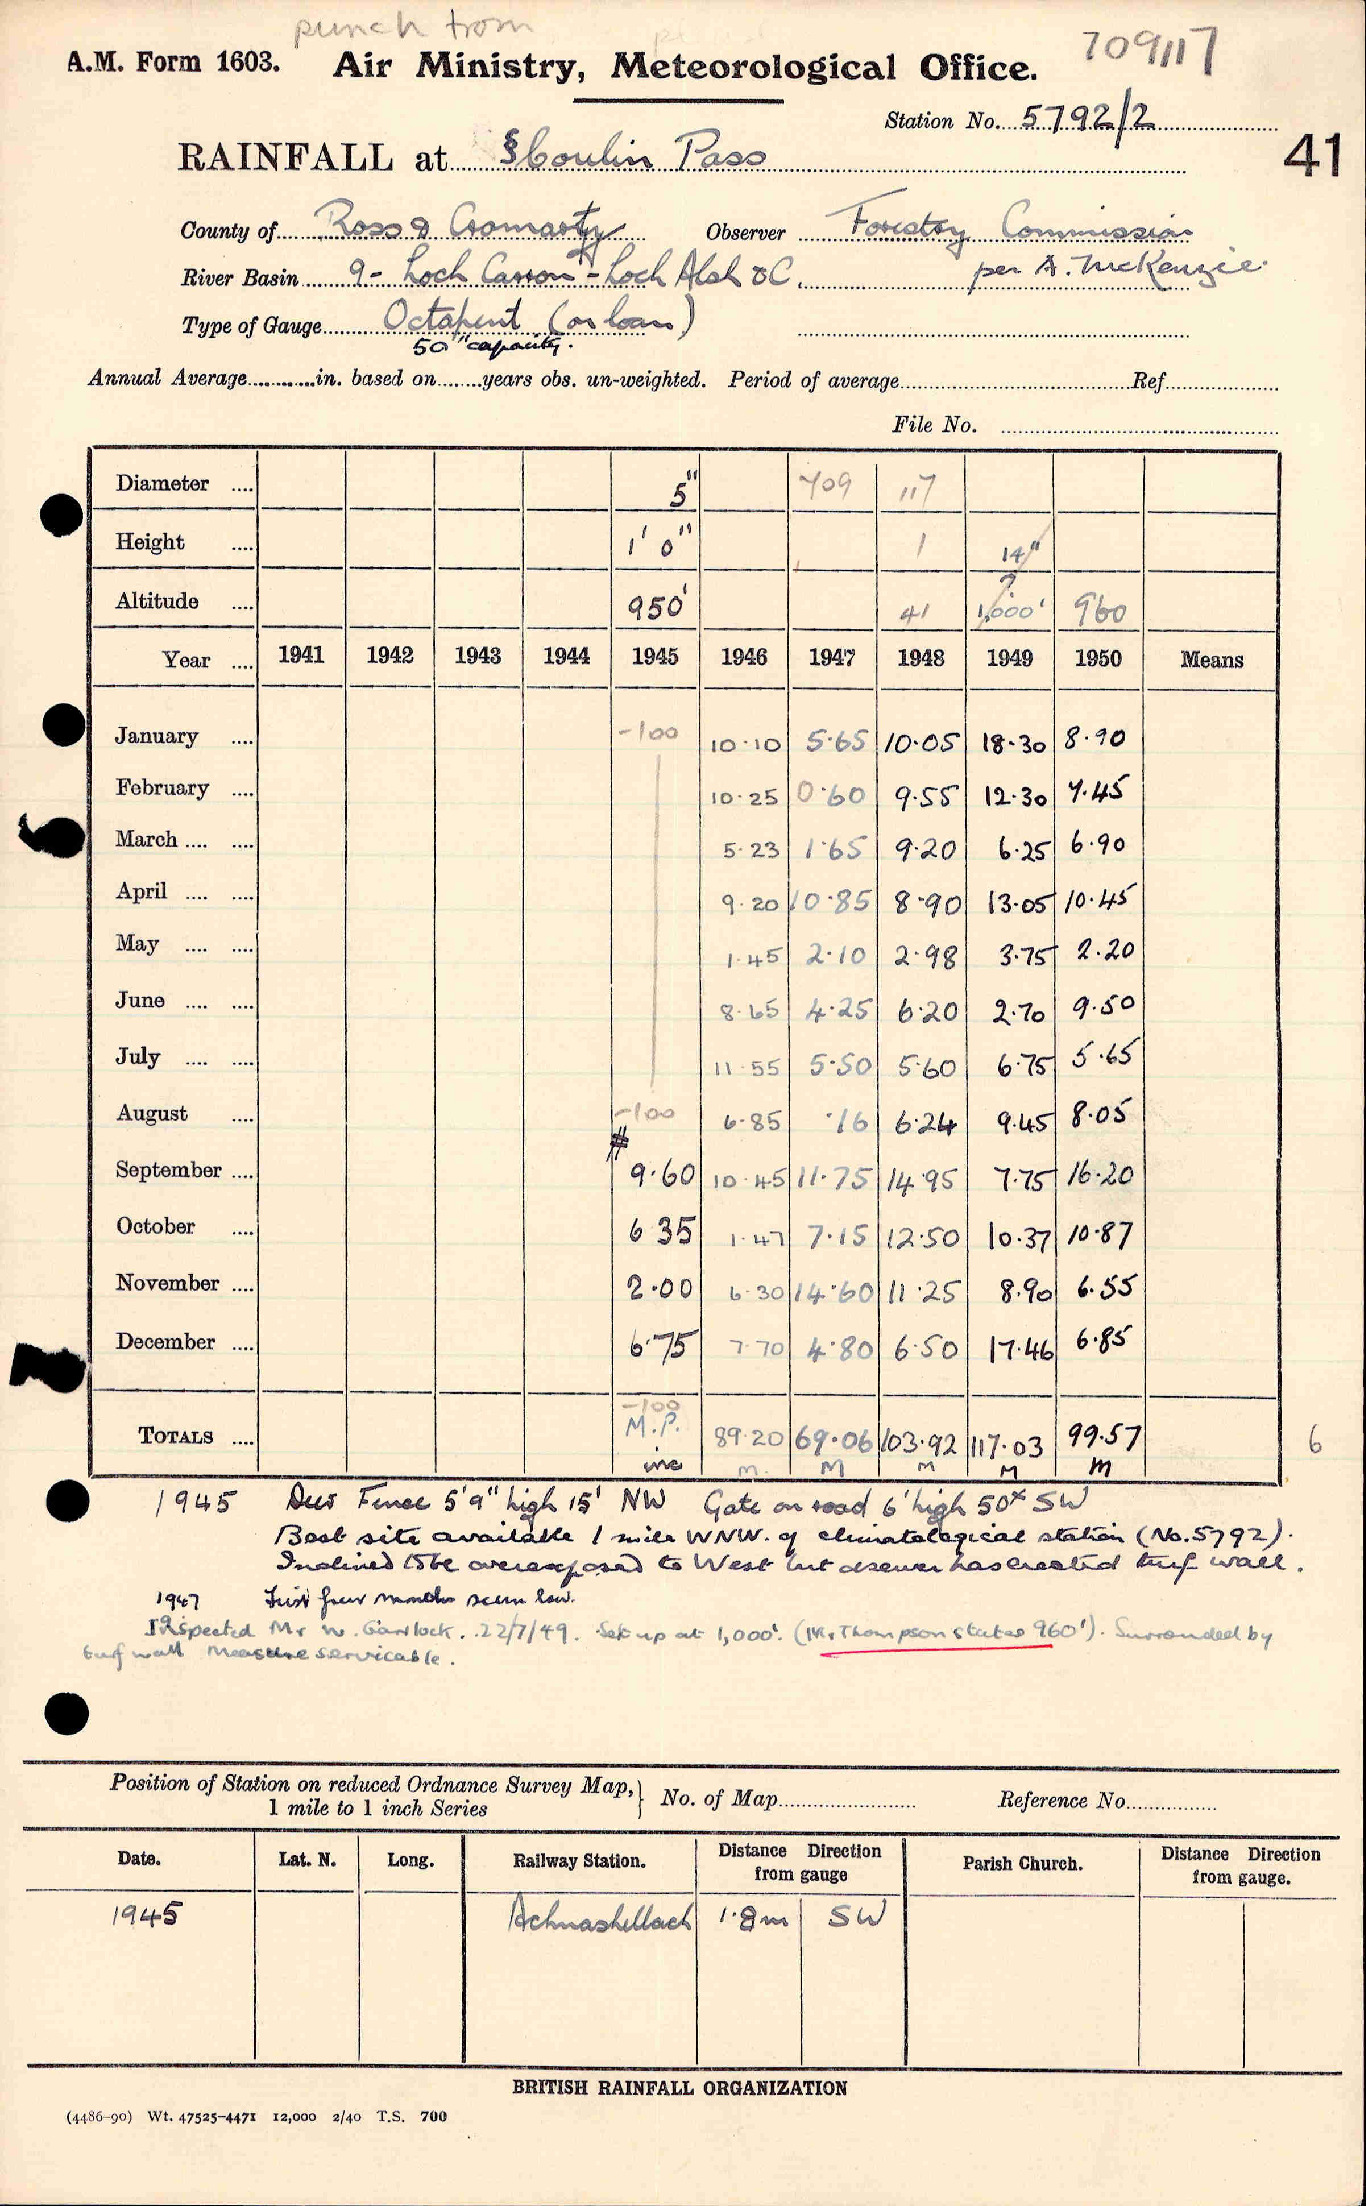 punch from
A.M. Form 1603. Air Ministry, Meteorological Office. 709117
Station No. 5792/2
41
RAINFALL at §Coulin Pass
County of Ross & Cromarty Observer Forestry Commission
River Basin 9 - Loch Carron - Loch Alsh &C. per A. McKenzie.
Type of Gauge Octapent (on loan)
50" capacity.
Annual Average in. based on years obs. un-weighted. Period of average Ref
File No.
Diameter 5" 709 117
Height 1' 0" 1 14"
?
Altitude 950' 41 1,000' 960
Year 1941 1942 1943 1944 1945 1946 1947 1948 1949 1950 Means
January -100 10.10 5.65 10.05 18.30 8.90
February 10.25 0.60 9.55 12.30 7.45
March 5.23 1.65 9.20 6.25 6.90
April 9.20 10.85 8.90 13.05 10.45
May 1.45 2.10 2.98 3.75 2.20
June 8.65 4.25 6.20 2.70 9.50
July 11.55 5.50 5.60 6.75 5.65
August -100 6.85 .16 6.24 9.45 8.05
#
September 9.60 10.45 11.75 14.95 7.75 16.20
October 6 35 1.47 7.15 12.50 10.37 10.87
November 2.00 6.30 14.60 11.25 8.90 6.55
December 6.75 7.70 4.80 6.50 17.46 6.85
-100
TOTALS M.P. 89.20 69.06 103.92 117.03 99.57 6
inc m. M m M m
1945 Deer Fence 5'9" high 15' NW Gate on road 6' high 50x SW
Best site available 1 mile WNW. of climatological station (No.5792).
Inclined to be overexposed to West but observer has erected turf wall.
1947 First four months seem low.
Inspected Mr W. Garlock. 22/7/49. Set up at 1,000'. (Mr Thompson states 960'). Surrounded by
turf wall Measure servicable.
Position of Station on reduced Ordnance Survey Map, No. of Map Reference No.
1 mile to 1 inch Series
Date. Lat. N. Long. Railway Station. Distance Direction from gauge Parish Church. Distance Direction from gauge.
1945 Achnashellach 1.8m SW
BRITISH RAINFALL ORGANIZATION
(4486-90) Wt. 47525-4471 12,000 2/40 T.S. 700